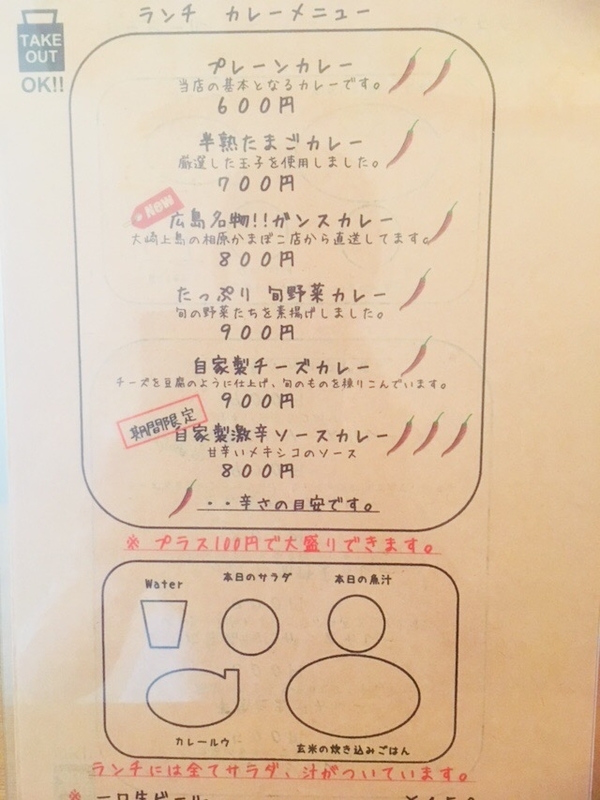 ランチ カレーメニュー
TAKE
OUT
OK!!
プレーンカレー
当店の基本となるカレーです。
600円
半熟たまごカレー
厳選した玉子を使用しました。
700円
New
広島名物!!ガンスカレー
大崎上島の相原かまぼこ店から直送してます。
800円
たっぷり 旬野菜カレー
旬の野菜たちを素揚げしました。
900円
自家製チーズカレー
チーズを豆腐のように仕上げ、旬のものを練りこんでいます。
900円
期間限定
自家製激辛ソースカレー
甘辛いメキシコのソース
800円
・・辛さの目安です。
※ プラス100円で大盛りできます。
Water
本日のサラダ
本日の魚汁
カレールウ
玄米の炊き込みごはん
ランチには全てサラダ、汁がついています。